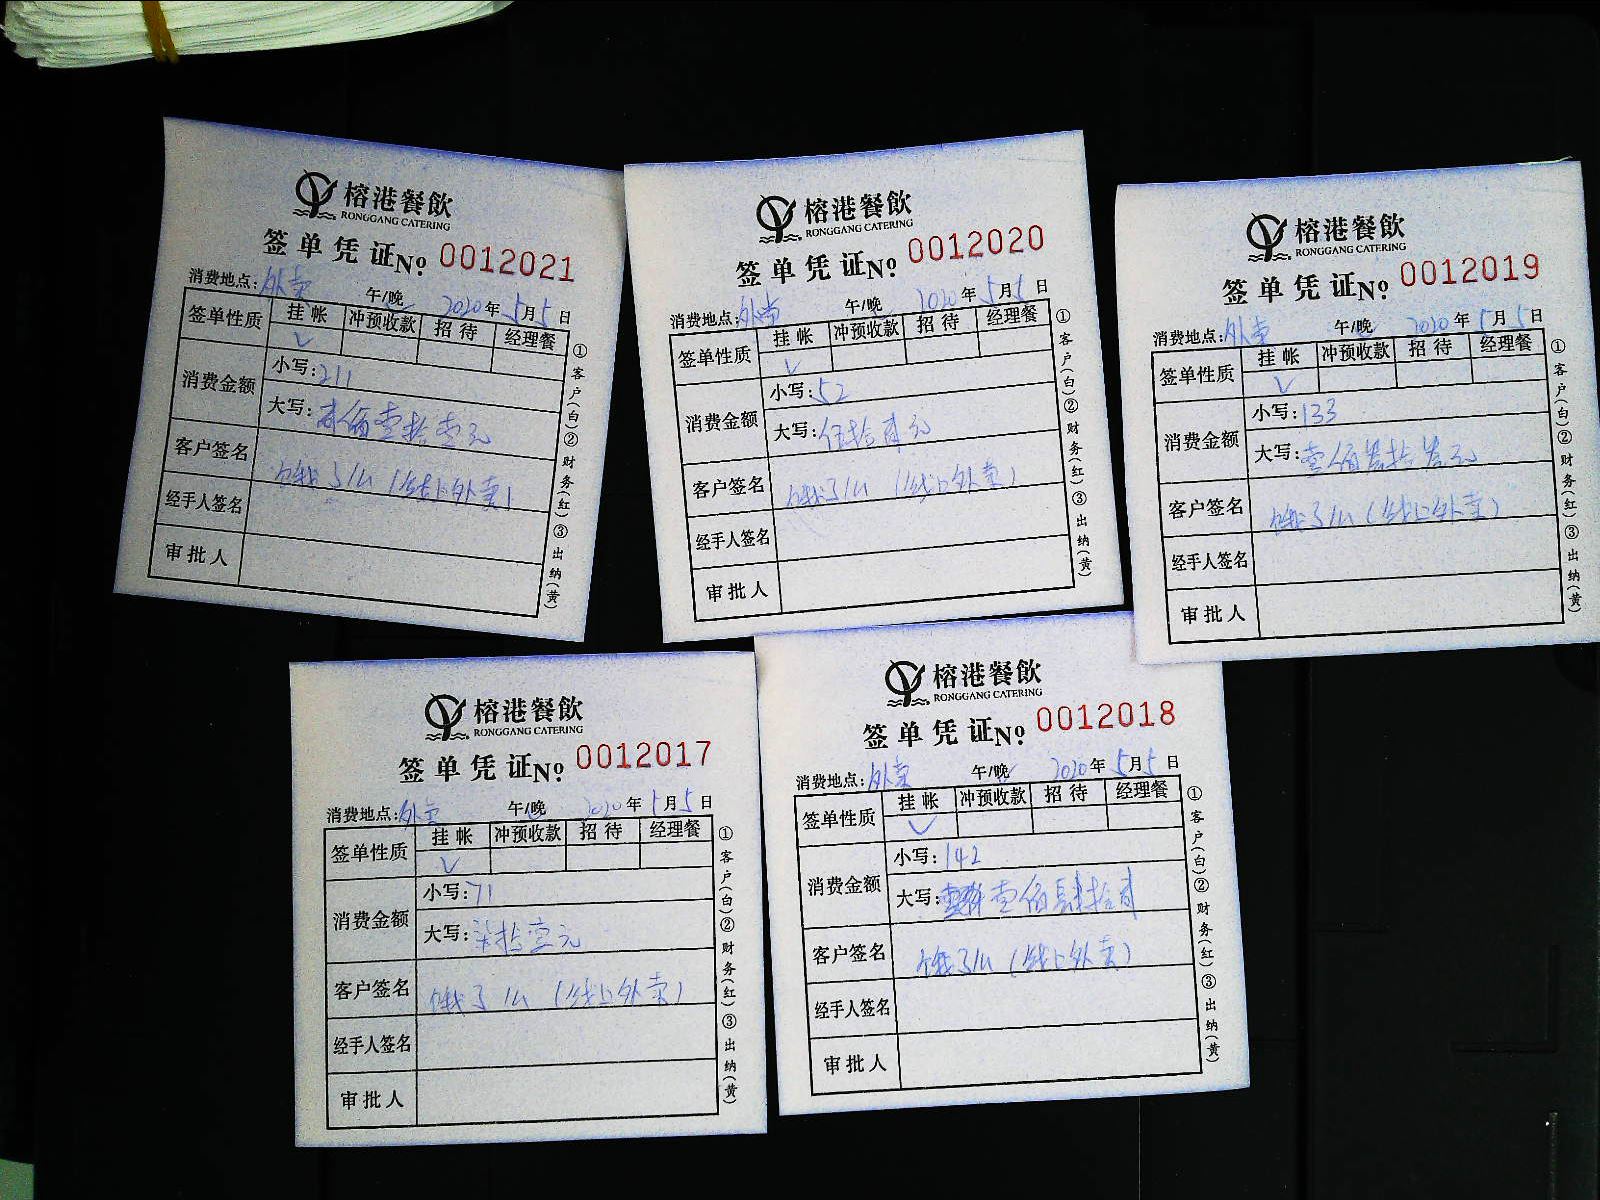 榕港餐飲
RONGGANG CATERING
签单凭证No 0012021
消费地点:外卖 午/晚 2020年5月5日
签单性质 挂帐 冲预收款 招待 经理餐
✓
消费金额 小写:211
大写:贰佰壹拾壹元
客户签名 饿了么(线上外卖)
经手人签名
审批人
①客户(白)②财务(红)③出纳(黄)
榕港餐飲
RONGGANG CATERING
签单凭证No 0012020
消费地点:外卖 午/晚 2020年5月5日
签单性质 挂帐 冲预收款 招待 经理餐
✓
消费金额 小写:52
大写:伍拾贰元
客户签名 饿了么(线上外卖)
经手人签名
审批人
①客户(白)②财务(红)③出纳(黄)
榕港餐飲
RONGGANG CATERING
签单凭证No 0012019
消费地点:外卖 午/晚 2020年5月5日
签单性质 挂帐 冲预收款 招待 经理餐
✓
消费金额 小写:133
大写:壹佰叁拾叁元
客户签名 饿了么(线上外卖)
经手人签名
审批人
①客户(白)②财务(红)③出纳(黄)
榕港餐飲
RONGGANG CATERING
签单凭证No 0012017
消费地点:外卖 午/晚 2020年5月5日
签单性质 挂帐 冲预收款 招待 经理餐
✓
消费金额 小写:71
大写:柒拾壹元
客户签名 饿了么(线上外卖)
经手人签名
审批人
①客户(白)②财务(红)③出纳(黄)
榕港餐飲
RONGGANG CATERING
签单凭证No 0012018
消费地点:外卖 午/晚 2020年5月5日
签单性质 挂帐 冲预收款 招待 经理餐
✓
消费金额 小写:142
大写:壹佰肆拾贰
客户签名 饿了么(线上外卖)
经手人签名
审批人
①客户(白)②财务(红)③出纳(黄)